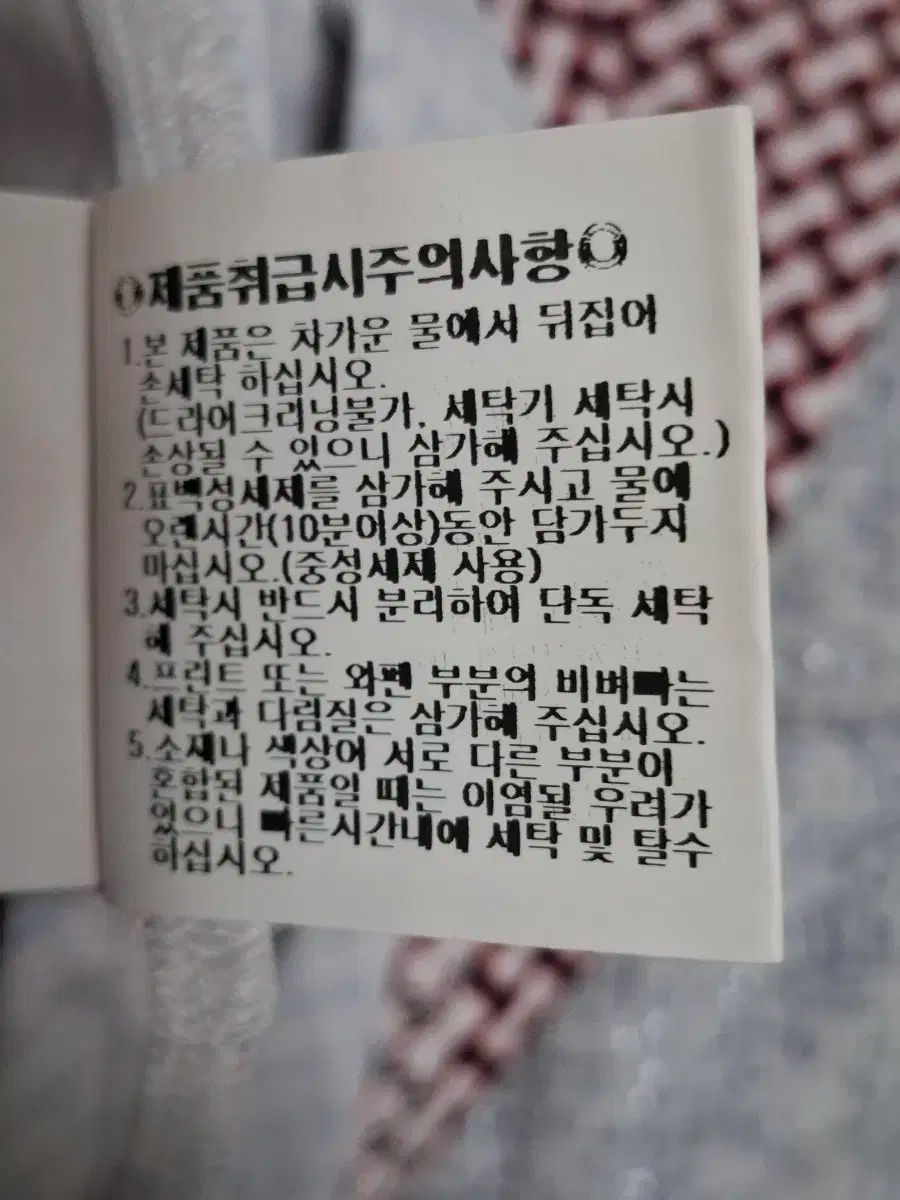 제품취급시주의사항
1.본 제품은 차가운 물에서 뒤집어
손세탁 하십시오.
(드라이크리닝불가, 세탁기 세탁시
손상될 수 있으니 삼가해 주십시오.)
2.표백성세제를 삼가해 주시고 물에
오랜시간(10분이상)동안 담가두지
마십시오.(중성세제 사용)
3.세탁시 반드시 분리하여 단독 세탁
해 주십시오.
4.프린트 또는 와펜 부분의 비벼빠는
세탁과 다림질은 삼가해 주십시오.
5.소재나 색상이 서로 다른 부분이
혼합된 제품일 때는 이염될 우려가
있으니 빠른시간내에 세탁 및 탈수
하십시오.